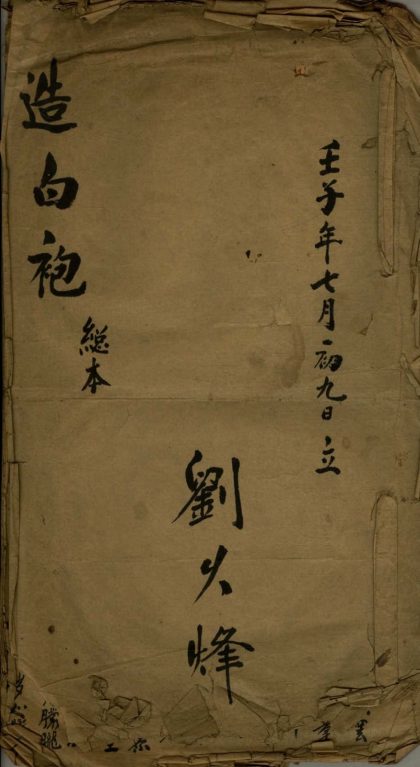 壬子年七月初九日立
劉火烽
造白袍
総本